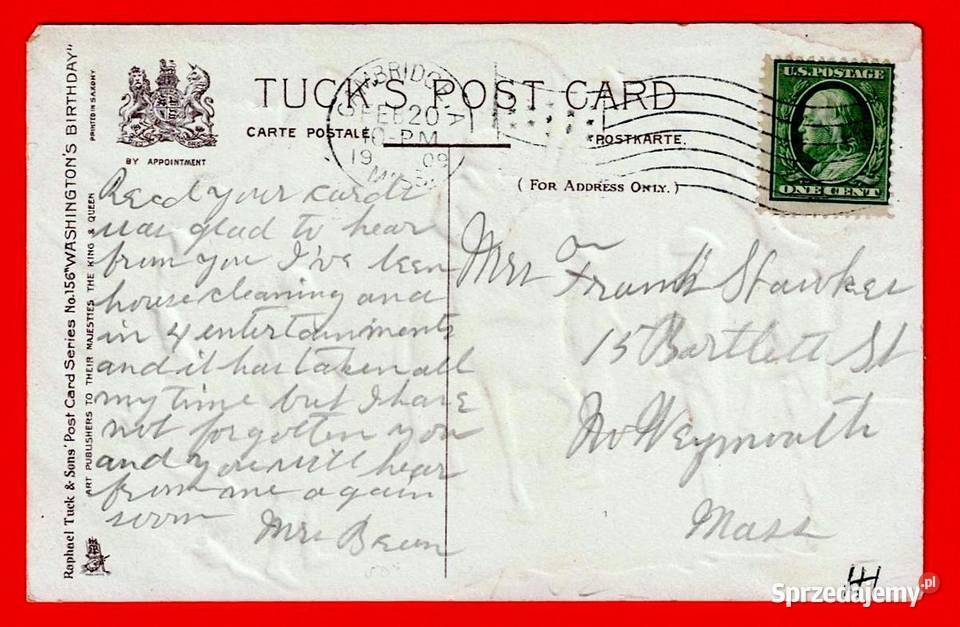 Raphael Tuck & Sons' Post Card Series No. 156 "WASHINGTON'S BIRTHDAY"
ART PUBLISHERS TO THEIR MAJESTIES THE KING & QUEEN
PRINTED IN SAXONY
BY APPOINTMENT
TUCK'S POST CARD
CARTE POSTALE.
POSTKARTE.
(FOR ADDRESS ONLY.)
CAMBRIDGE A
FEB 20
10-PM
1909
MASS.
U.S. POSTAGE
ONE CENT
Recd your cards
was glad to hear
from you I've been
house cleaning and
in 4 entertainments
and it has taken all
my time but I have
not forgotten you
and you will hear
from me again
soon
Mrs
Mrs Frank
15 Bartlett St
No Weymouth
Mass
Sprzedajemy.pl